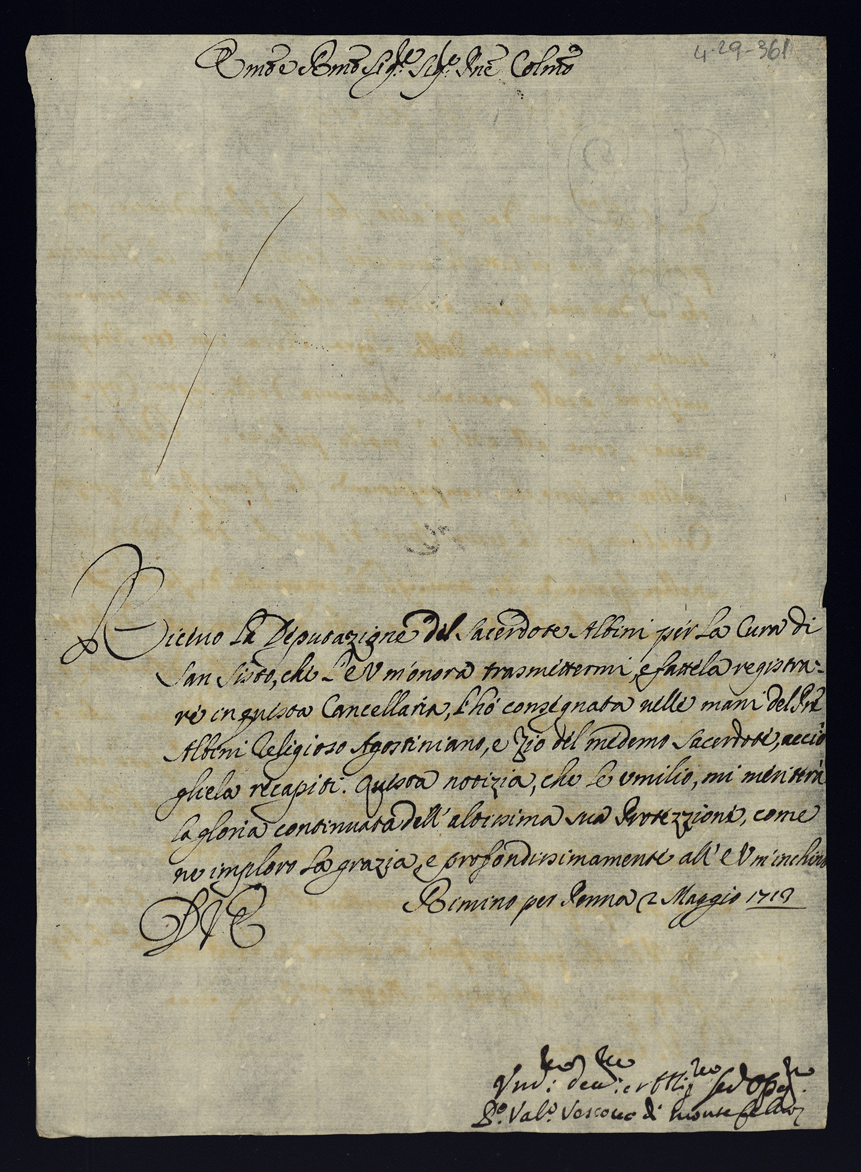 4-29-361
Emo e Rmo Sigre Sigre Pne Colmo
Riceuo La Deputazione del Sacerdote Albini per La Cura di
San Sisto, che L'E V m'onora trasmettermi, e fattela registra=
re in questa Cancellaria, l'hò consegnata nelle mani del Pre
Albini Religioso Agostiniano, e Zio del medemo Sacerdote, acciò
gliela recapiti. Questa notizia, che Le vmilio, mi meriterà
la gloria continuata dell'altissima sua Protezzione, come
ne imploro La grazia, e profondissimamente all'E V m'inchino
Rimino per Penna 2 Maggio 1718
DVE
Vmo: deuo: et oblig
Vescouo di Montefeltro